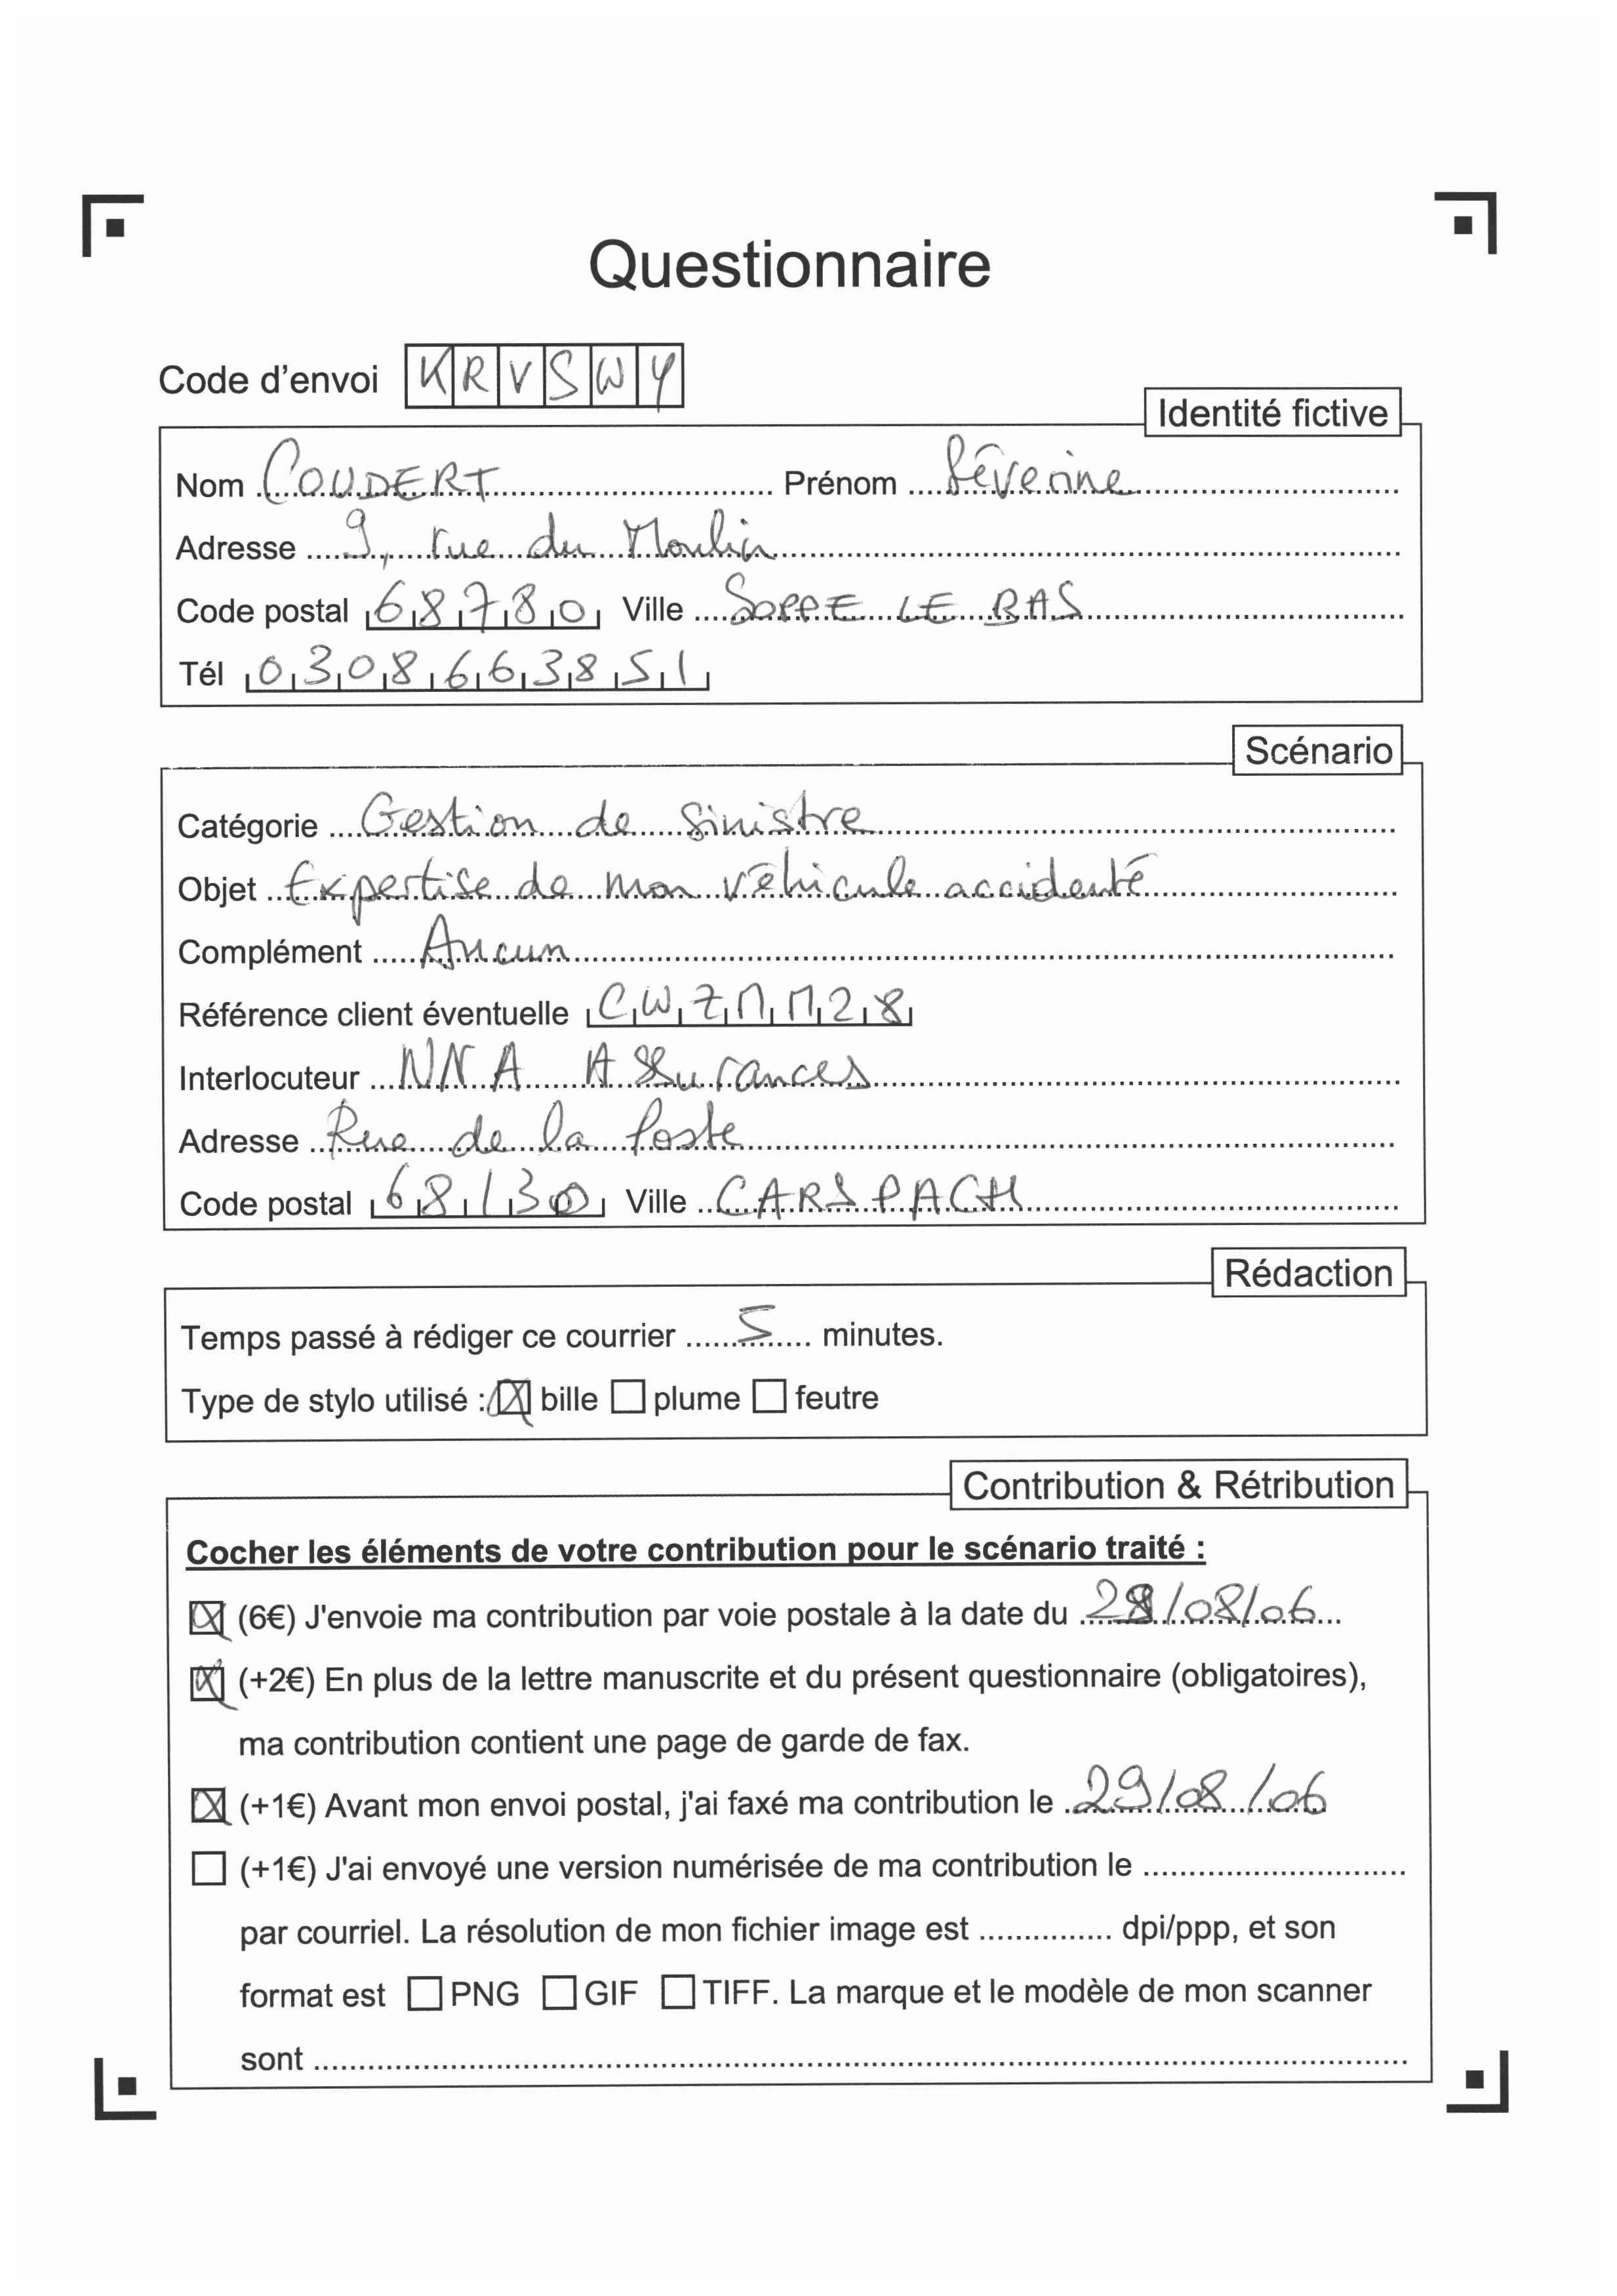 Questionnaire
Code d'envoi KRVSWY
Identité fictive
Nom COUDERT Prénom Séverine
Adresse 9, rue du Moulin
Code postal 68780 Ville SOPPE LE BAS
Tél 0308663851
Scénario
Catégorie Gestion de sinistre
Objet Expertise de mon véhicule accidenté
Complément Aucun
Référence client éventuelle CWZMM28
Interlocuteur NNA Assurances
Adresse Rue de la Poste
Code postal 68130 Ville CARSPACH
Rédaction
Temps passé à rédiger ce courrier 5 minutes.
Type de stylo utilisé : bille plume feutre
Contribution & Rétribution
Cocher les éléments de votre contribution pour le scénario traité :
(6€) J'envoie ma contribution par voie postale à la date du
(+2€) En plus de la lettre manuscrite et du présent questionnaire (obligatoires),
ma contribution contient une page de garde de fax.
(+1€) Avant mon envoi postal, j'ai faxé ma contribution le 29/08/06
(+1€) J'ai envoyé une version numérisée de ma contribution le
par courriel. La résolution de mon fichier image est dpi/ppp, et son
format est PNG GIF TIFF. La marque et le modèle de mon scanner
sont